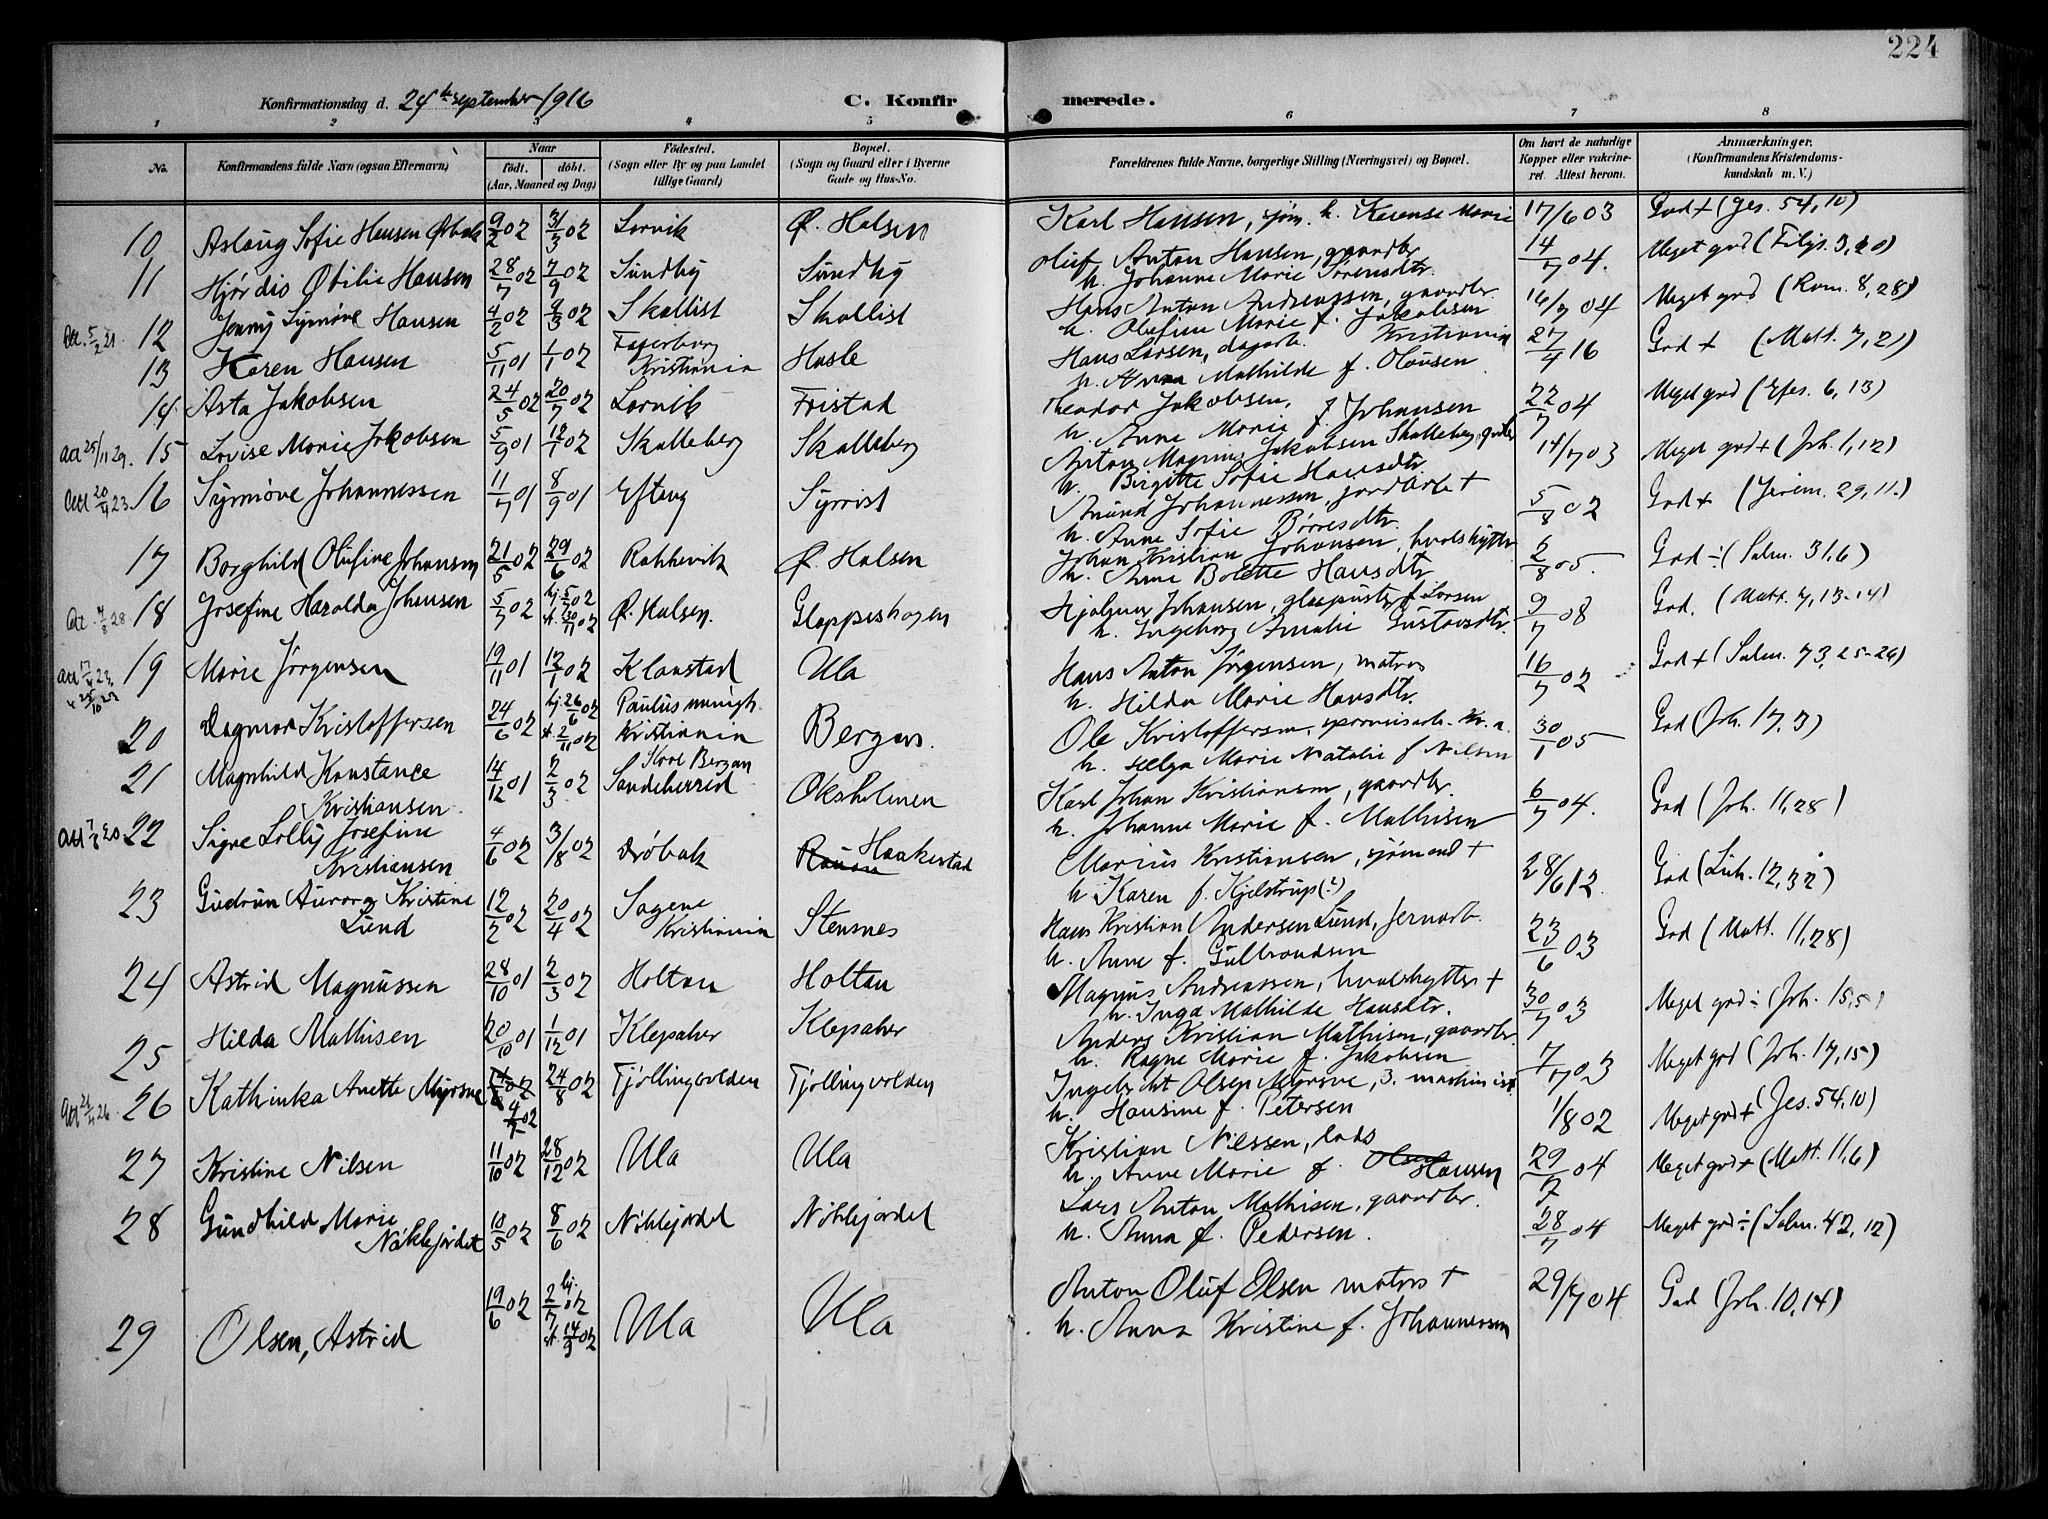 224
Konfirmationsdag d. 24de september 1916 C. Konfirmerede.
1 2 3 4 5 6 7 8
No. Konfirmandens fulde Navn (ogsaa Efternavn) Naar født. døbt. (Aar, Maaned og Dag) Fødested. (Sogn eller By og paa Landet tillige Gaard) Bopæl. (Sogn og Gaard eller i Byerne Gade og Hus-No. Forældrenes fulde Navne, borgerlige Stilling (Næringsvei) og Bopæl. Om havt de naturlige Kopper eller vakcineret. Attest herom. Anmærkninger. (Konfirmandens Kristendomskundskab m. V.)
10 Aslaug Sofie Hansen 9/2 02 31/3 02 Lorvik Ø. Halsen Karl Hansen, sjøm. h. Karense Marie 17/6 03 God + (Jes. 54,10)
11 Hjørdis Otilie Hansen 28/7 02 7/9 02 Sundby Sundby Oluf Anton Hansen, gaardbr. 14/7 04. Meget god (Filip. 3,20)
h. Johanne Marie Sørensdtr.
Att. 5/2 21. 12 Jenny Synnøve Hansen 4/2 02 9/3 02 Skallist Skallist Hans Anton Andreassen, gaardbr. 16/7 04 Meget god (Rom. 8,28)
h. Olufine Marie f. Jakobsen
13 Karen Hansen 5/11 01 1/1 02 Fagerborg Kristiania Hasle Hans Larsen, dagarb. Kristiania 27/4 16 God + (Matt. 7,21)
h. Anna Mathilde f. Olausen
14 Asta Jakobsen 24/5 02 20/7 02 Lorvik Fristad Theodor Jakobsen, 22/7 04 Meget god (Efes. 6,13)
h. Anne Marie f. Johansen
Att 25/11 29. 15 Lovise Marie Jakobsen 5/9 01 12/1 02 Skalleberg Skalleberg Anton Magnus Jakobsen Skalleberg, gbr. 14/7 03 Meget god + (Joh. 1,12)
h. Birgitte Sofie Hansdtr.
Att 20/4 23. 16 Synnøve Johannessen 11/7 01 8/9 01 Efteng Syrrist Amund Johannessen, jordarb. + 5/8 02 God + (Jerem. 29,11.)
h. Anne Sofie Børresdtr.
17 Borghild Olufine Johansen 21/5 02 29/6 02 Rakkevik Ø. Halsen Johan Kristian Johansen, hvalskytter 6/8 05. God ÷ (Salm. 31,6)
h. Anne Bolette Hansdtr.
Att. 4/3 28 18 Josefine Haralda Johansen 5/7 02 hj. 5/7 02 st. 30/11 02 Ø. Halsen. Gloppeshagen Hjalmar Johansen, glaspuster f. Larsen 9/7 08 God. (Matt. 7,13-14)
h. Ingeborg Amalie Gustavsdtr.
Att 17/4 23. 25/10 29 19 Marie Jørgensen 19/11 01 12/1 02 Klaastad Ula Hans Anton Jørgensen, matros 16/7 02 God + (Salm. 73,25-26)
h. Hilda Marie Hansdtr.
20 Dagmar Kristoffersen 24/6 02 hj. 26/6 02 st 2/11 02 Paulus menigh. Kristiania Bergan. Ole Kristoffersen, Kr.a. 30/1 05 God (Joh. 17,3)
h. Helga Marie Natalie f Nilsen
21 Magnhild Konstance Kristiansen 14/12 01 2/3 02 Skore Bergan Sandeherred Oksholmen Karl Johan Kristiansen, gaardbr. 6/7 04. God (Joh. 11,28)
h. Johanne Marie f. Mathisen
Att 7/8 20 22 Signe Lolly Josefine Kristiansen 4/6 02 3/8 02 Drøbak Rauan Haakestad Marius Kristiansen, sjømand + 28/6 12. God (Luk. 12,32)
h Karen f. Kjelstrup(?)
23 Gudrun Aurora Kristine Lund 12/2 02 20/4 02 Sagene Kristiania Stensnes Hans Kristian Andersen Lund, jernarb. 23/6 03 God (Matt. 11,28)
h. Anne f. Gulbrandsen
24 Astrid Magnussen 28/10 01 2/3 02 Holtan Holtan Magnus Andreassen, hvalskytter + 30/7 03 Meget god ÷ (Joh. 15,5)
h. Inga Mathilde Hansdtr.
25 Hilda Mathisen 20/10 01 1/12 01 Klepaker Klepaker Anders Kristian Mathisen, gaardbr. 7/7 03 Meget god (Joh. 17,15)
h. Ragne Marie f. Jakobsen
Att 21/4 26 26 Kathinka Anette Myrsve 4/7 02 24/8 02 Tjøllingvolden Tjøllingvolden Ingebrikt Olsen Myrsve, 3. maskinist 1/8 02 Meget god + (Jes. 54,10)
h. Hansine f. Petersen
27 Kristine Nilsen 11/10 02 28/12 02 Ula Ula Kristian Nilssen, lods 29/7 04 Meget god + (Matt. 11,6)
h. Anne Marie f. Olsen Hansen
28 Gundhild Marie Nøklejordet 18/5 02 8/6 02 Nøklejordet Nøklejordet Lars Anton Mathisen, gaardbr. 28/7 04 Meget god ÷ (Salm. 42,12)
h. Anna f. Pedersen.
29 Olsen, Astrid 19/6 02 2/7 hj. 02 st. 14/9 02 Ula Ula Anton Oluf Olsen matros + 29/7 04 God (Joh. 10,14)
h. Anna Kristine f. Johannessen